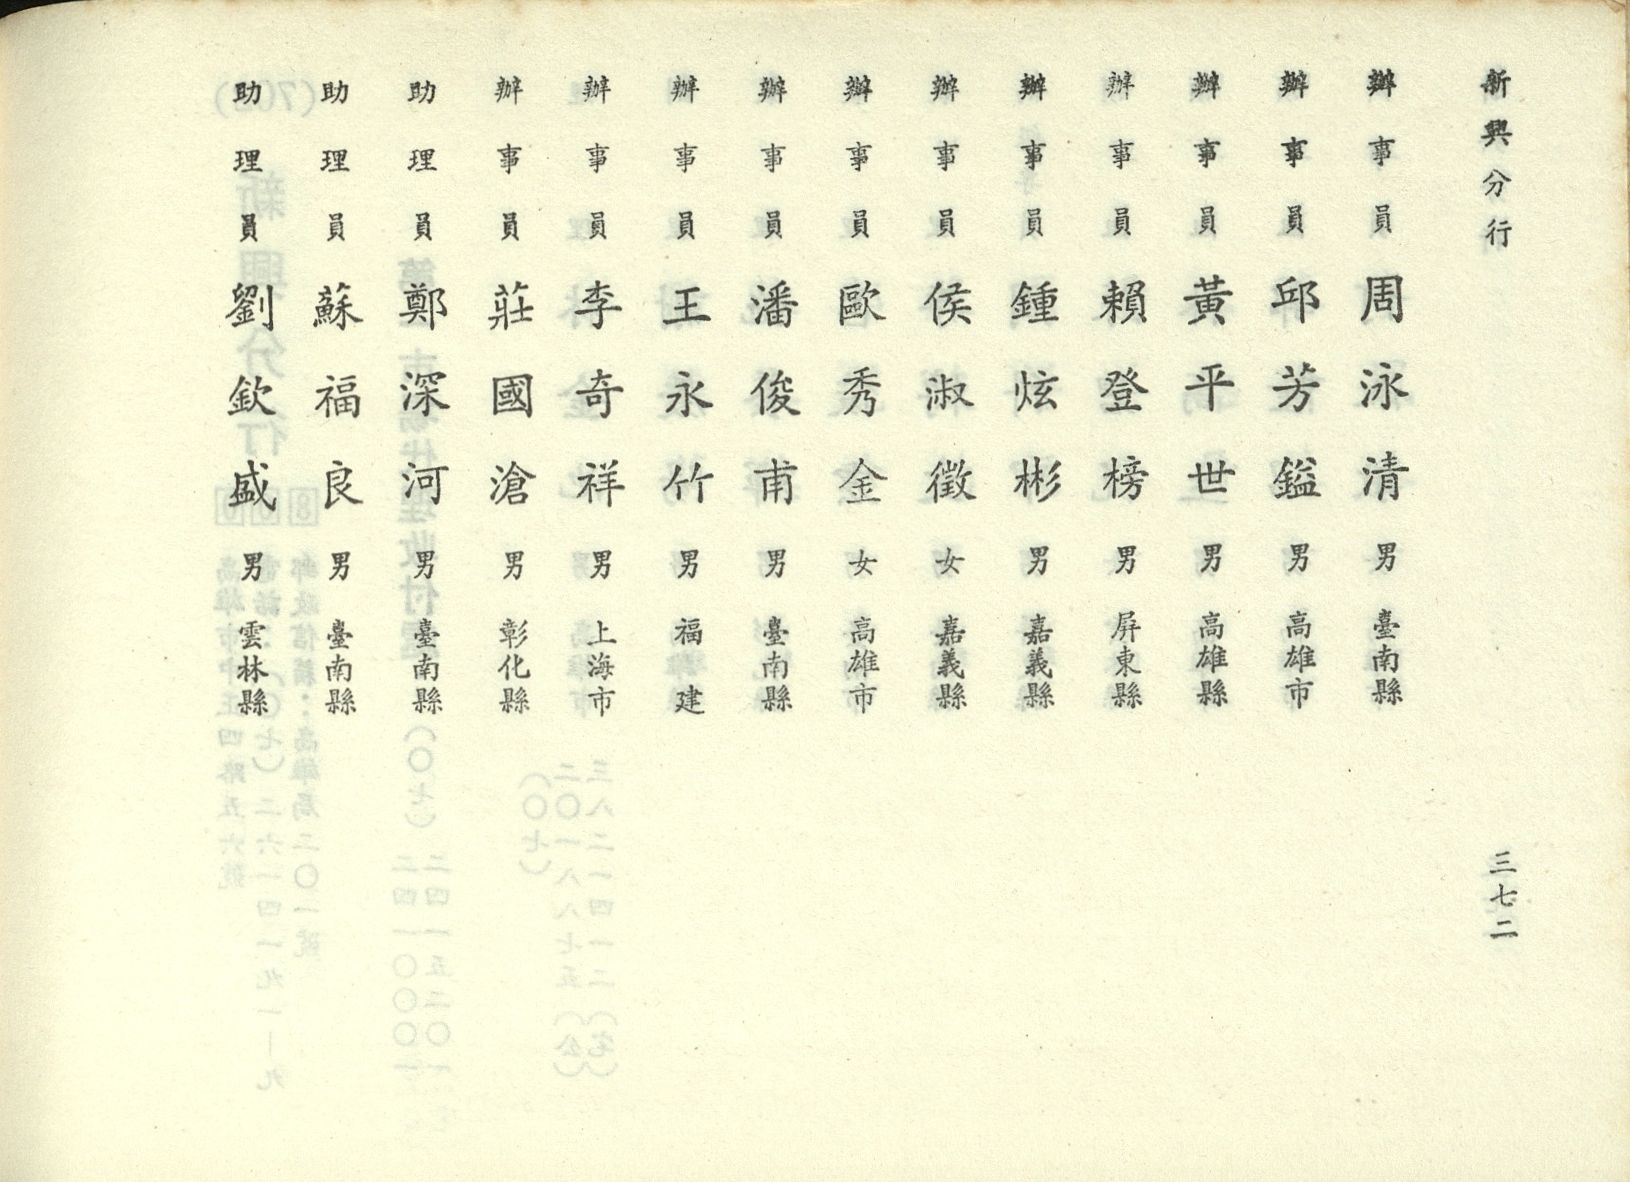 新興分行
三七二
辦事員 周泳清 男 臺南縣
辦事員 邱芳鎰 男 高雄市
辦事員 黃平世 男 高雄縣
辦事員 賴登榜 男 屏東縣
辦事員 鍾炫彬 男 嘉義縣
辦事員 侯淑徵 女 嘉義縣
辦事員 歐秀金 女 高雄市
辦事員 潘俊甫 男 臺南縣
辦事員 王永竹 男 福建
辦事員 李奇祥 男 上海市
辦事員 莊國滄 男 彰化縣
助理員 鄭深河 男 臺南縣
助理員 蘇福良 男 臺南縣
助理員 劉欽盛 男 雲林縣